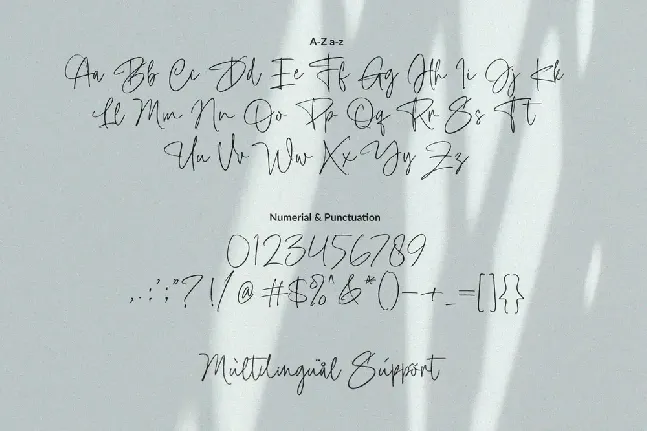 A-Z a-z
Aa Bb Cc Dd Ee Ff Gg Hh Ii Jj Kk
Ll Mm Nn Oo Pp Qq Rr Ss Tt
Uu Vv Ww Xx Yy Zz
Numerial & Punctuation
0123456789
,.:';"?!/@#$%^&*()-+_=[]{}
Mùltilinguâl Súppört